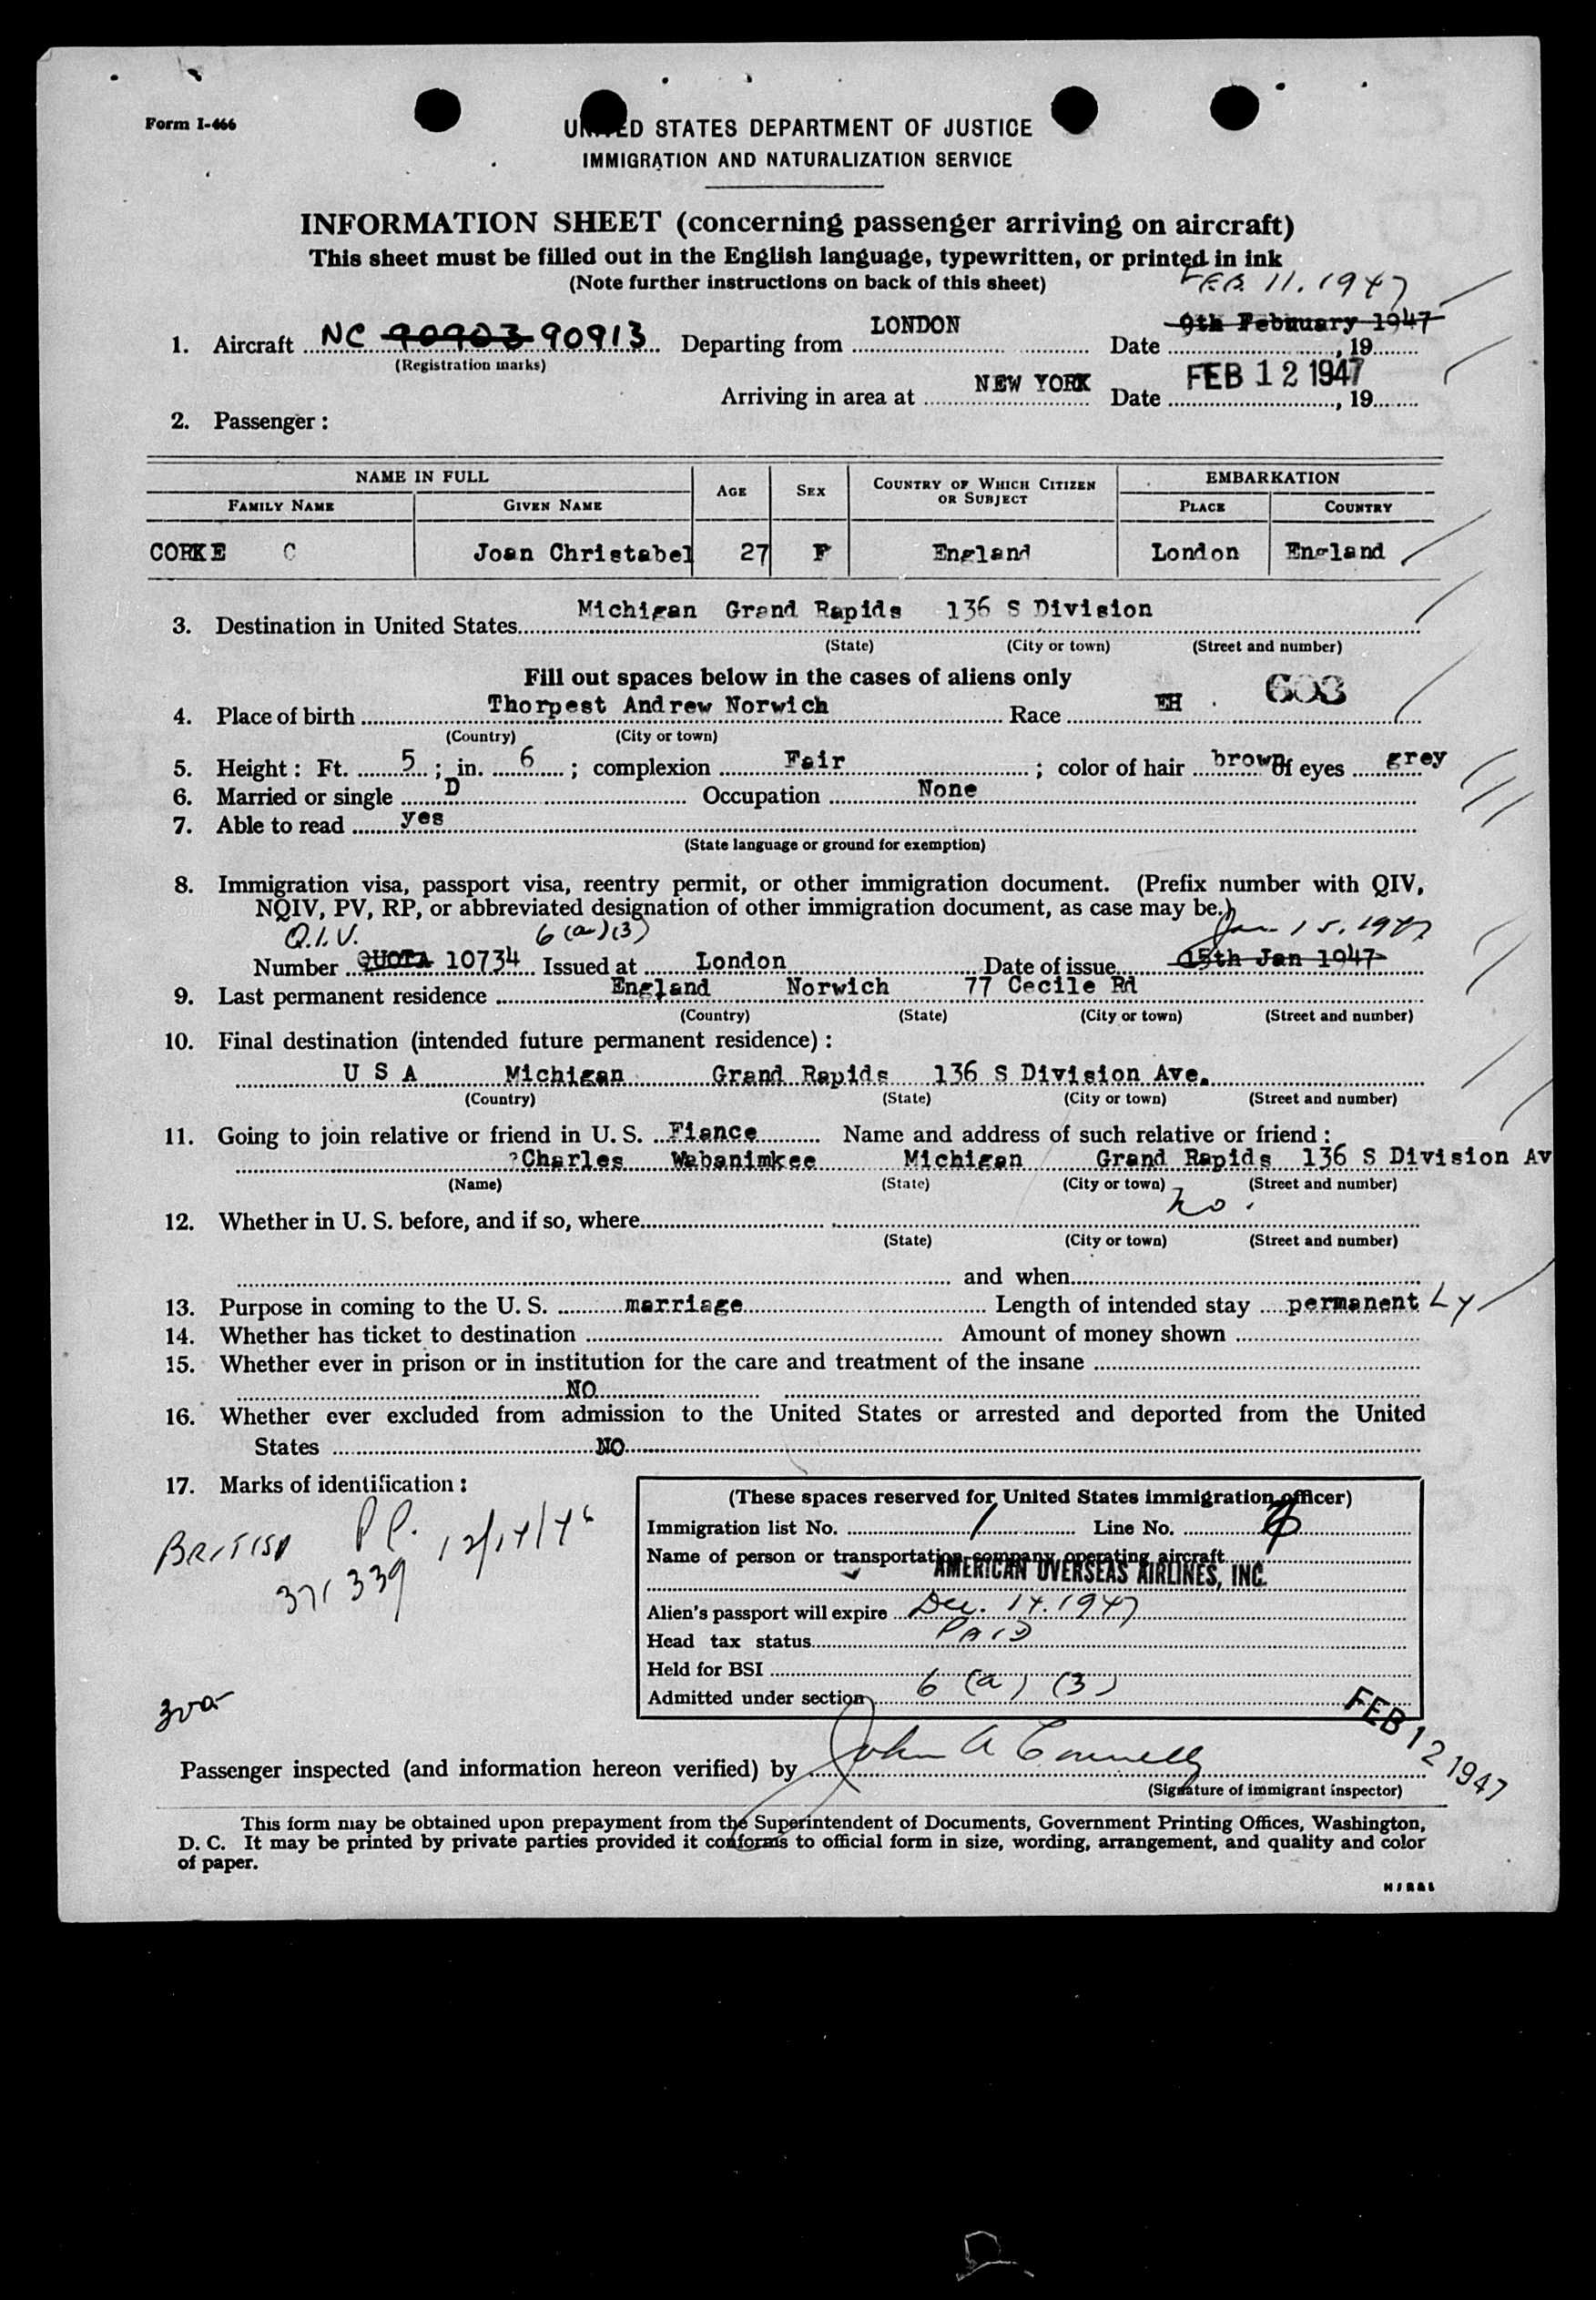 Form I-466
UNITED STATES DEPARTMENT OF JUSTICE
IMMIGRATION AND NATURALIZATION SERVICE
INFORMATION SHEET (concerning passenger arriving on aircraft)
This sheet must be filled out in the English language, typewritten, or printed in ink
(Note further instructions on back of this sheet)
FEB 11. 1947
1. Aircraft NC 90903 90913 Departing from LONDON Date 9th Febuuary 1947, 19
(Registration marks)
Arriving in area at NEW YORK Date FEB 12 1947, 19
2. Passenger:
NAME IN FULL AGE SEX COUNTRY OF WHICH CITIZEN OR SUBJECT EMBARKATION
FAMILY NAME GIVEN NAME PLACE COUNTRY
CORKE C Joan Christabel 27 F England London England
3. Destination in United States Michigan Grand Rapids 136 S Division
(State) (City or town) (Street and number)
Fill out spaces below in the cases of aliens only
603
4. Place of birth Thorpest Andrew Norwich Race EH
(Country) (City or town)
5. Height: Ft. 5; in. 6; complexion Fair; color of hair brown of eyes grey
6. Married or single D Occupation None
7. Able to read yes
(State language or ground for exemption)
8. Immigration visa, passport visa, reentry permit, or other immigration document. (Prefix number with QIV,
NQIV, PV, RP, or abbreviated designation of other immigration document, as case may be.)
Q.I.V. 6(a)(3) Jan 15. 1947
Number QUOTA 10734 Issued at London Date of issue 15th Jan 1947
9. Last permanent residence England Norwich 77 Cecile Rd
(Country) (State) (City or town) (Street and number)
10. Final destination (intended future permanent residence):
U S A Michigan Grand Rapids 136 S Division Ave.
(Country) (State) (City or town) (Street and number)
11. Going to join relative or friend in U. S. Fiance Name and address of such relative or friend:
?Charles Wabanimkee Michigan Grand Rapids 136 S Division Av
(Name) (State) (City or town) (Street and number)
no.
12. Whether in U. S. before, and if so, where
(State) (City or town) (Street and number)
and when
13. Purpose in coming to the U. S. marriage Length of intended stay permanent Ly
14. Whether has ticket to destination Amount of money shown
15. Whether ever in prison or in institution for the care and treatment of the insane
NO
16. Whether ever excluded from admission to the United States or arrested and deported from the United
States NO
17. Marks of identification:
BRITISH PP. 12/14/46
371339
(These spaces reserved for United States immigration officer)
Immigration list No. 1 Line No.
Name of person or transportation company operating aircraft
AMERICAN OVERSEAS AIRLINES, INC.
Alien's passport will expire Dec. 14. 1947
Head tax status PAID
Held for BSI
Admitted under section 6 (a) (3)
FEB 12 1947
Passenger inspected (and information hereon verified) by John A Connelly
(Signature of immigrant inspector)
This form may be obtained upon prepayment from the Superintendent of Documents, Government Printing Offices, Washington,
D. C. It may be printed by private parties provided it conforms to official form in size, wording, arrangement, and quality and color
of paper.